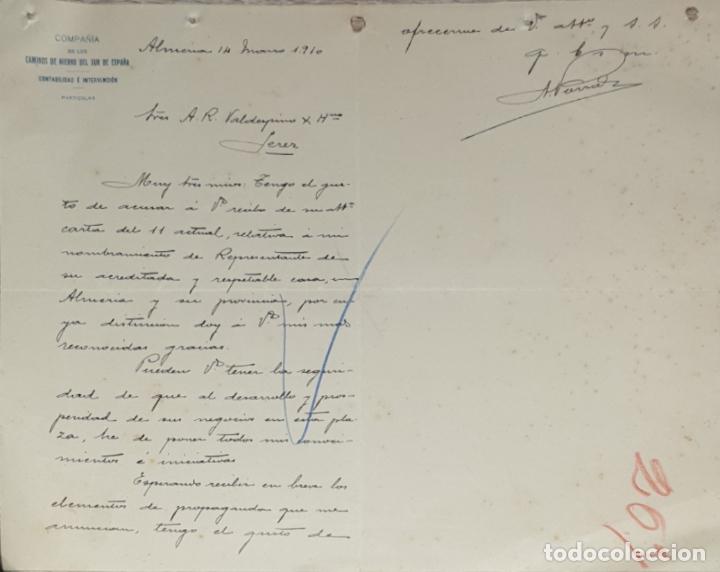 COMPAÑIA
DE LOS
CAMINOS DE HIERRO DEL SUR DE ESPAÑA
CONTABILIDAD É INTERVENCIÓN
PARTICULAR
Almeria 14 Marzo 1910
Sres A. R. Valdespino y Hno
Jerez
Muy Sres mios: Tengo el gus-
to de acusar á Vs recibo de su attª
carta del 11 actual, relativa á mi
nombramiento de Representante de
su acreditada y respetable casa, en
Almeria y su provincia, por cu-
ya distincion doy á Vs mis mas
reconocidas gracias.
Pueden Vs tener la seguri-
dad de que al desarrollo y pros-
peridad de sus negocios en esta pla-
za, he de poner todos mis conoci-
mientos é iniciativas
Esperando recibir en breve los
elementos de propaganda que me
anuncian, tengo el gusto de
ofrecerme de Vs atto y S. S.
q. b. s. m.
267
todocoleccion.net